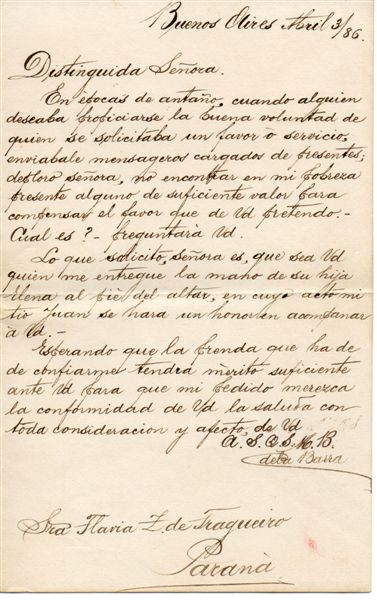 Buenos Aires Abril 3/86.
Distinguida Señora.
En épocas de antaño, cuando alguien
deseaba propiciarse la buena voluntad de
quien se solicitaba un favor ò servicio,
enviabale mensageros cargados de presentes;
deploro señora, no encontrar en mi pobreza
presente alguno de suficiente valor para
compensar el favor que de Vd pretendo.-
Cual es? - preguntarà Vd.
Lo que solicito, señora es, que sea Vd
quien me entregue la mano de su hija
Elena al pié del altar, en cuyo acto mi
tio Juan se hara un honor en acompañar
à Vd.-
Esperando que la prenda que ha de
de confiarme tendrá mérito suficiente
ante Vd para que mi pedido merezca
la conformidad de Vd la saluda con
toda consideracion y afecto, de Vd
A. S. Q. S. M. B.
de la Barra
Sra Flavia Z. de Fragueiro
Paranà